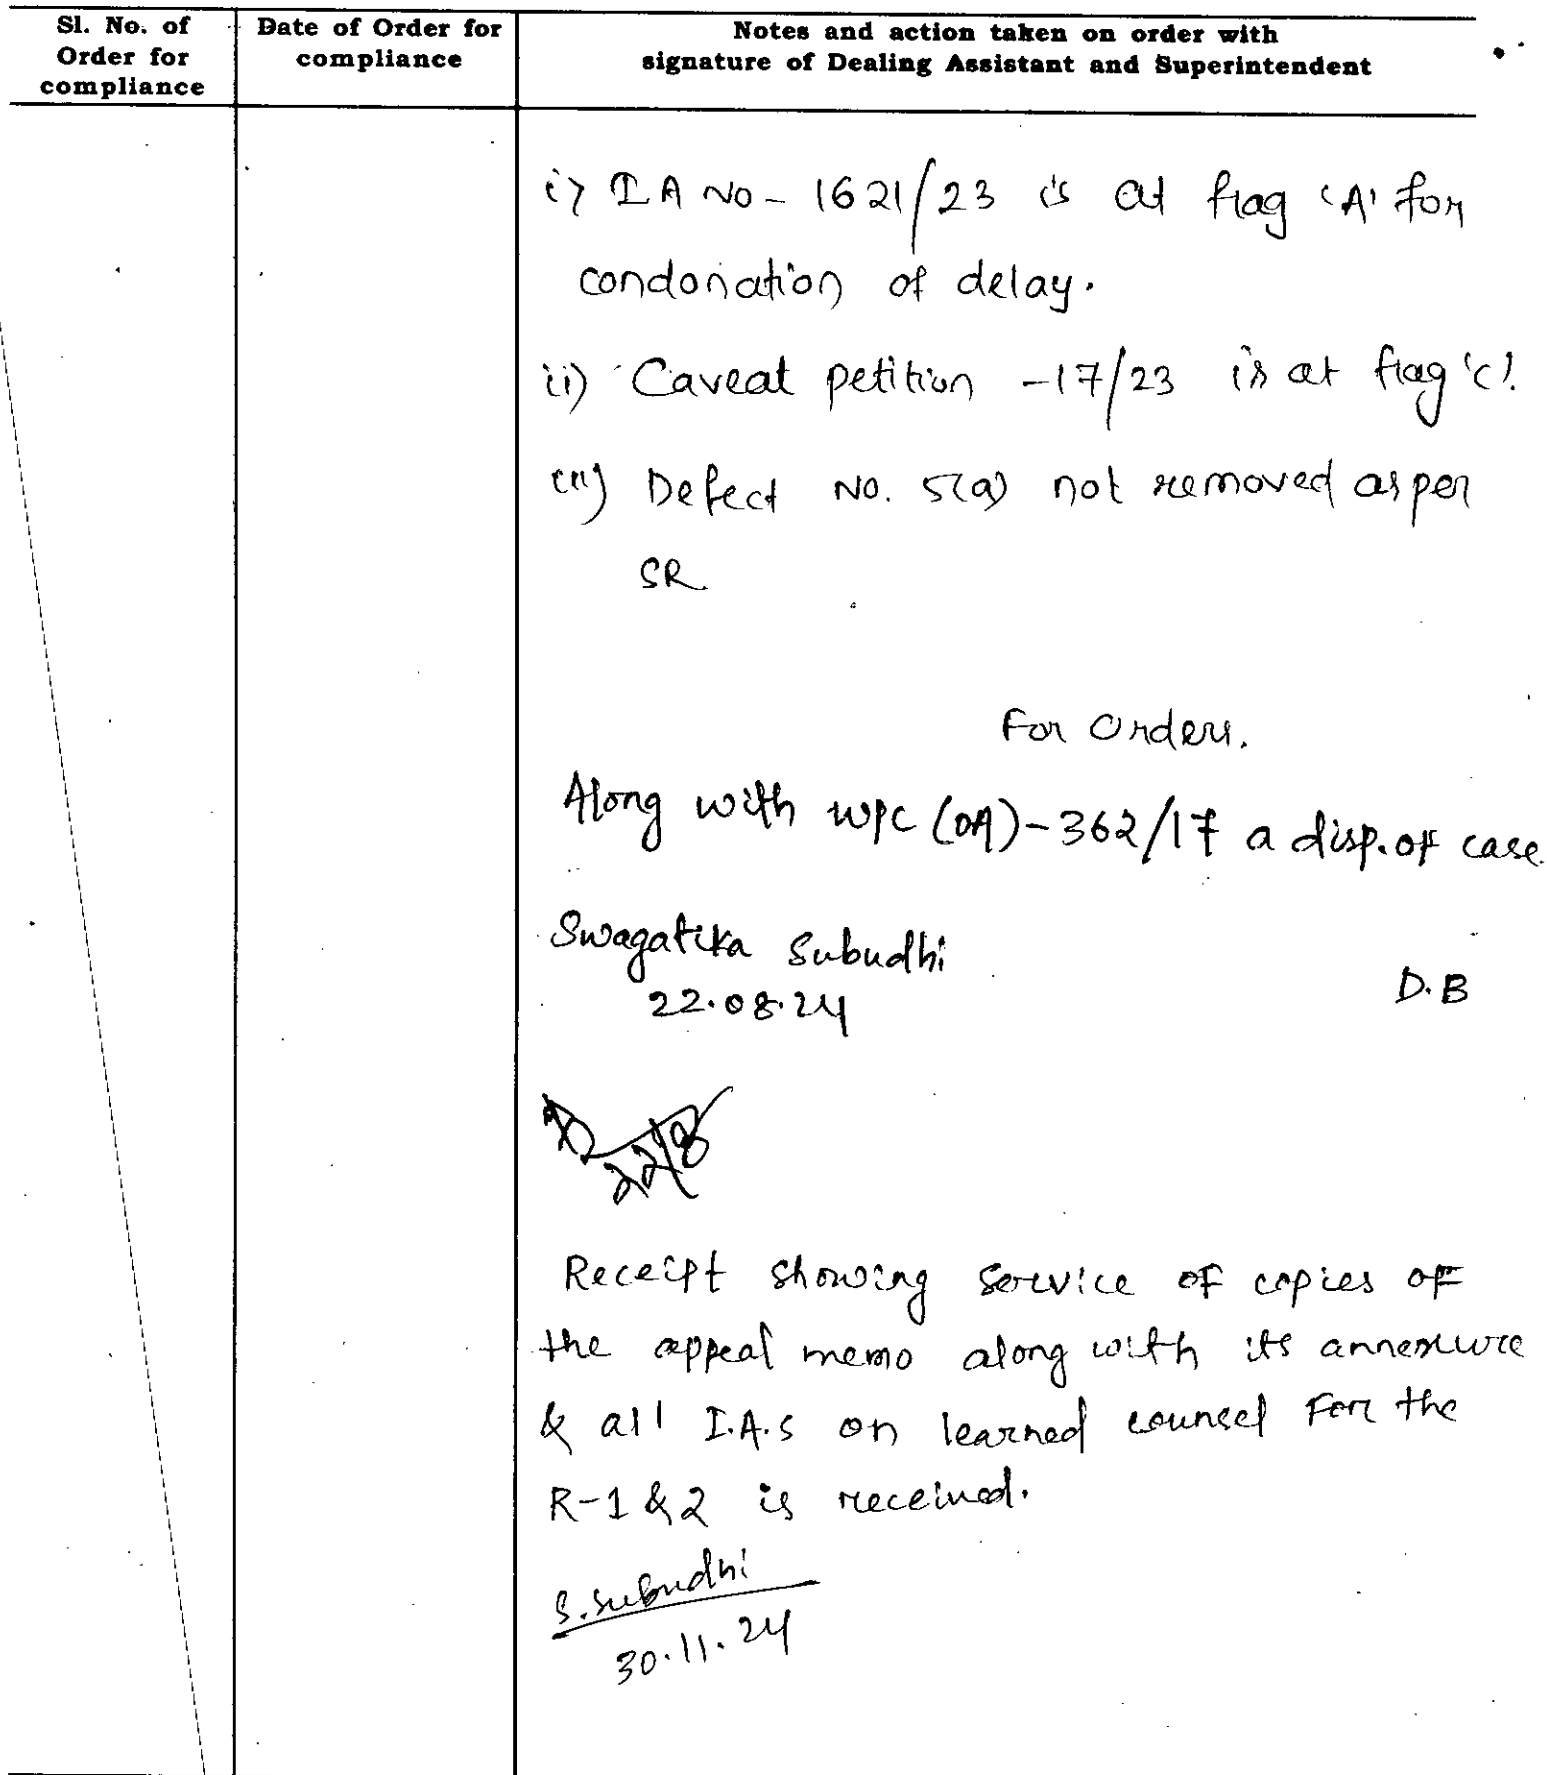 Sl. No. of
Order for
compliance
Date of Order for
compliance
Notes and action taken on order with
signature of Dealing Assistant and Superintendent
i) I A No - 1621/23 is at flag 'A' for
condonation of delay.
ii) Caveat petition - 17/23 is at flag 'C'.
iii) Defect No. 5(a) not removed as per
SR
For Orders.
Along with WPC (OA) - 362/17 a disp. of case.
Swagatika Subudhi
22.08.24
D.B
22/8
Receipt showing service of copies of
the appeal memo along with its annexure
& all I.A.s on learned counsel For the
R-1 & 2 is received.
S. Subudhi
30.11.24